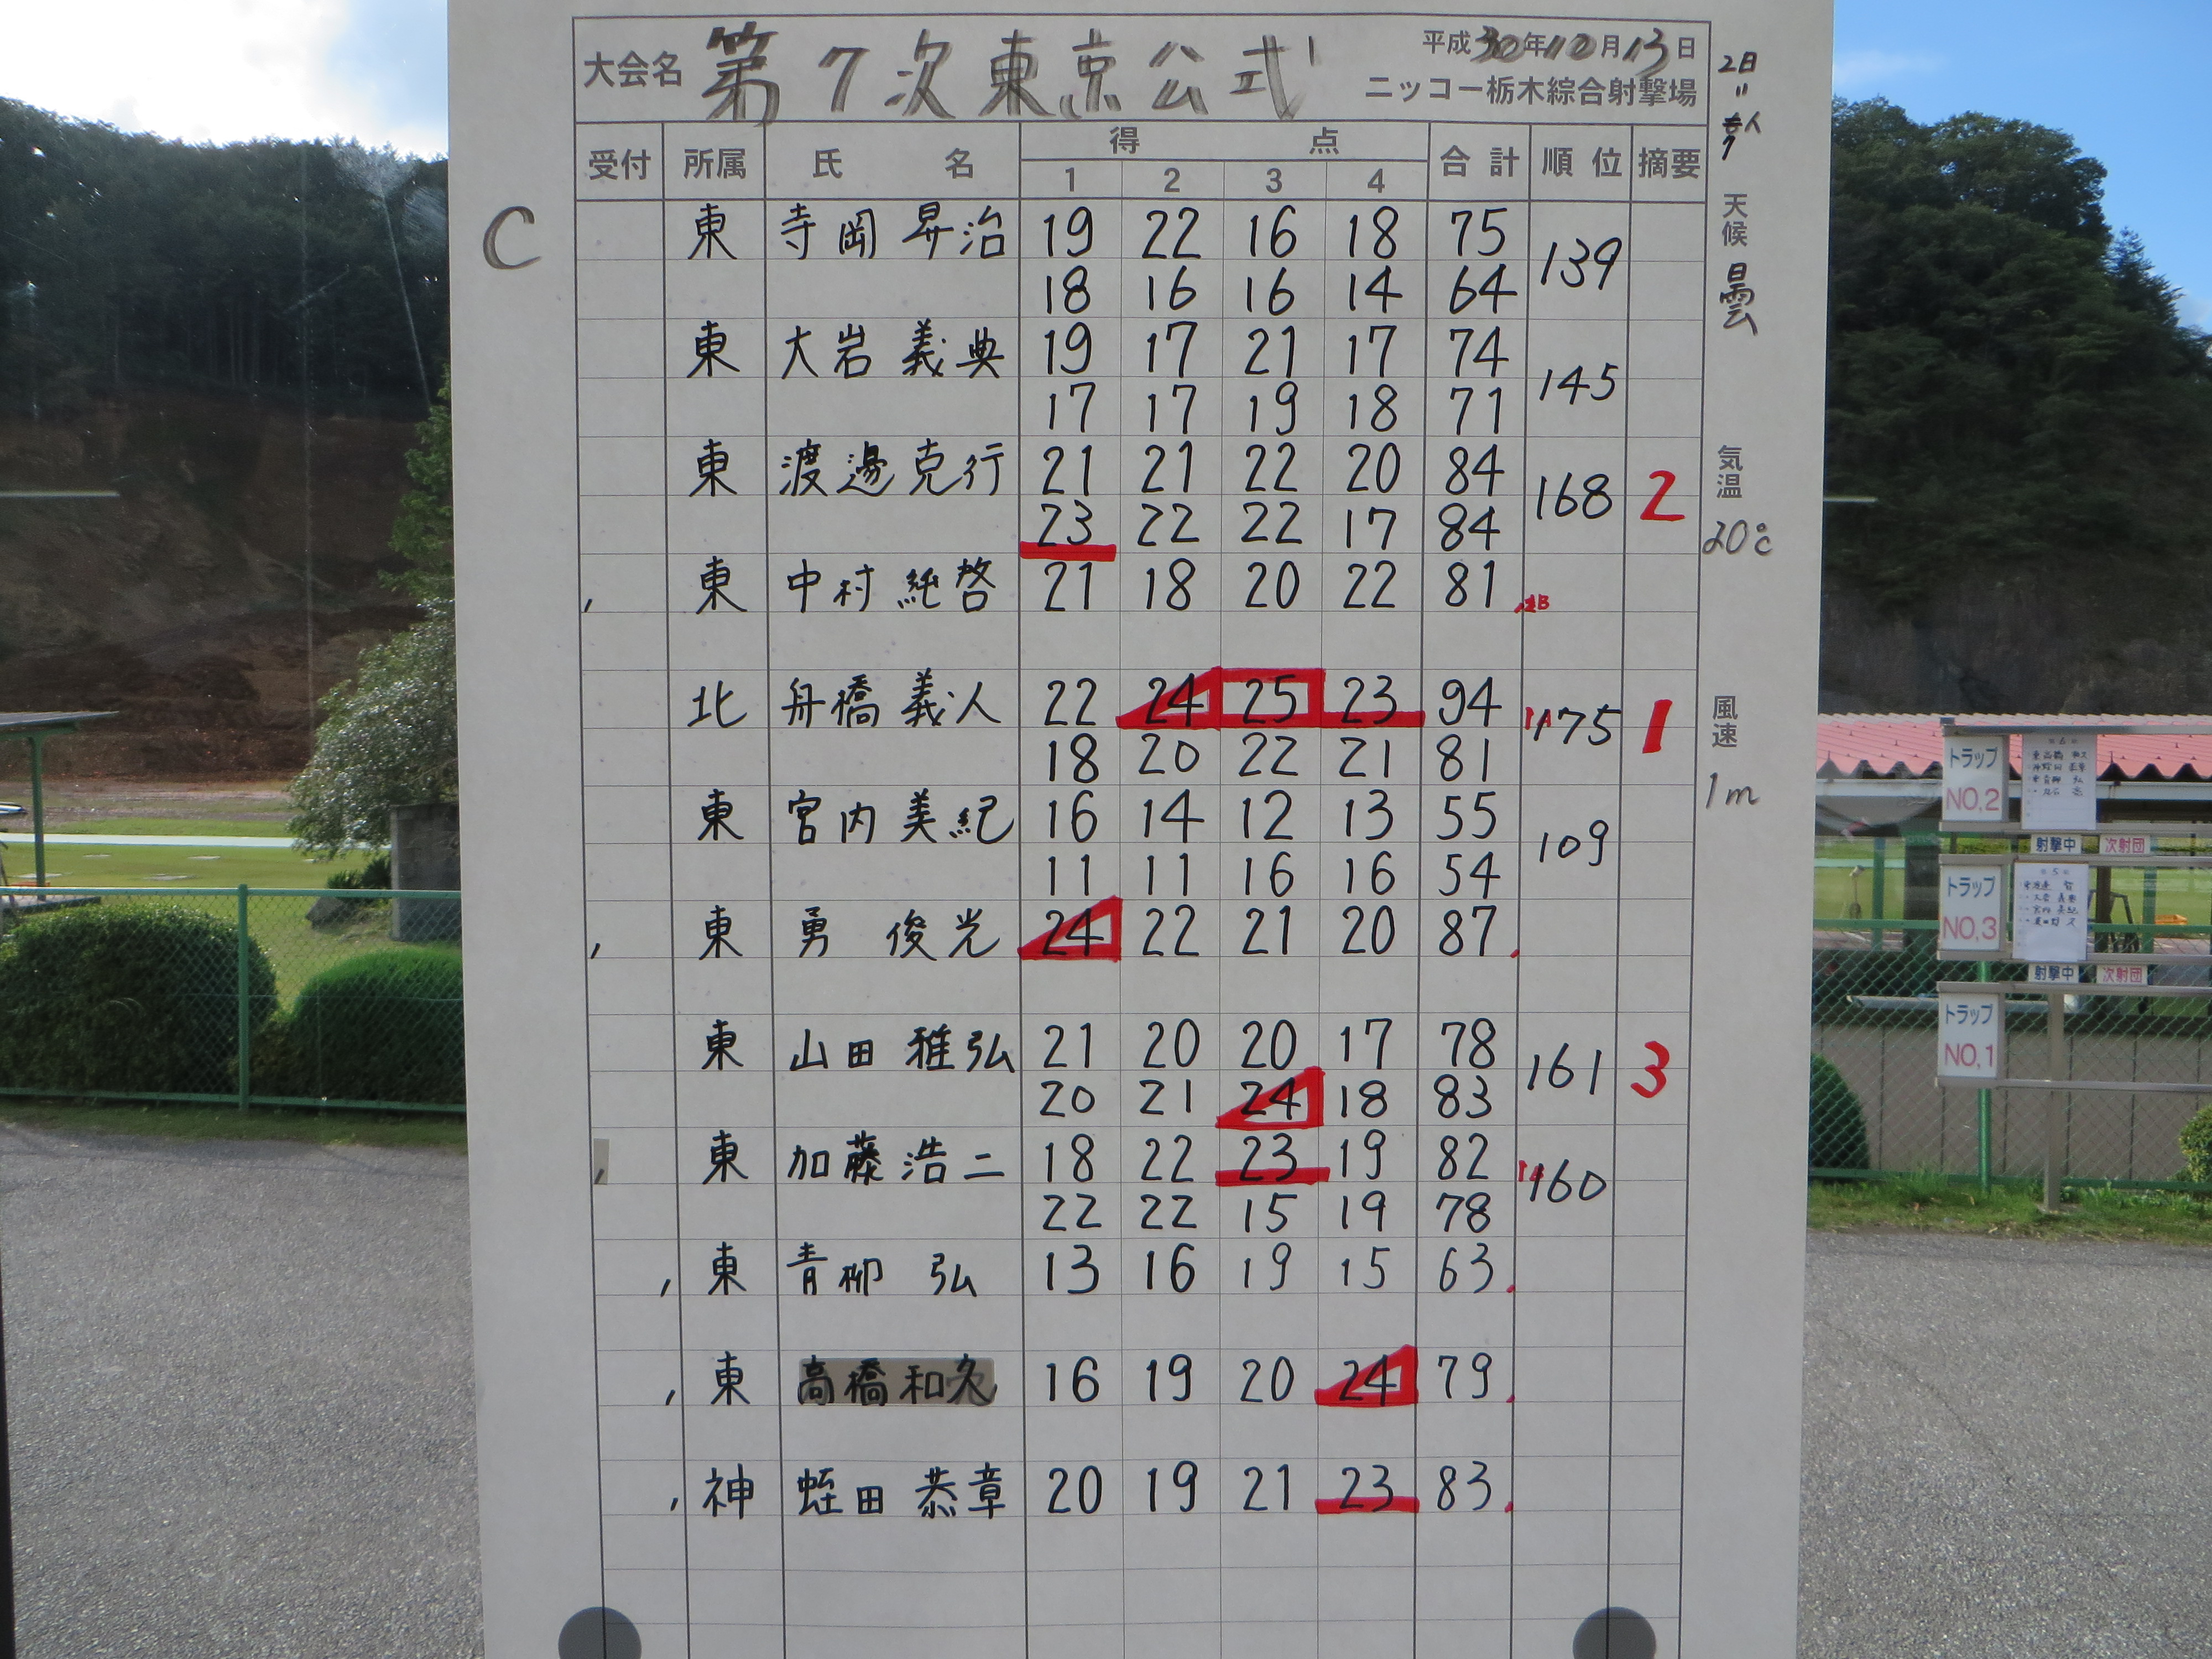 大会名 第7次東京公式
平成30年10月13日
ニッコー栃木綜合射撃場
受付 所属 氏 名 得 点 合計 順位 摘要
1 2 3 4
C
東 寺岡 昇治 19 22 16 18 75 139
18 16 16 14 64
東 大岩 義典 19 17 21 17 74 145
17 17 19 18 71
東 渡邊 克行 21 21 22 20 84 168 2
23 22 22 17 84
東 中村 純啓 21 18 20 22 81
北 舟橋 義人 22 24 25 23 94 175 1
18 20 22 21 81
東 宮内 美紀 16 14 12 13 55 109
11 11 16 16 54
東 勇 俊光 24 22 21 20 87
東 山田 雅弘 21 20 20 17 78 161 3
20 21 24 18 83
東 加藤 浩二 18 22 23 19 82 160
22 22 15 19 78
東 青柳 弘 13 16 19 15 63
東 高橋和久 16 19 20 24 79
神 蛭田 恭章 20 19 21 23 83
2日
天候
曇
気温
20℃
風速
1m
トラップ
NO,2
射撃中 次射団
トラップ
NO,3
射撃中 次射団
トラップ
NO,1